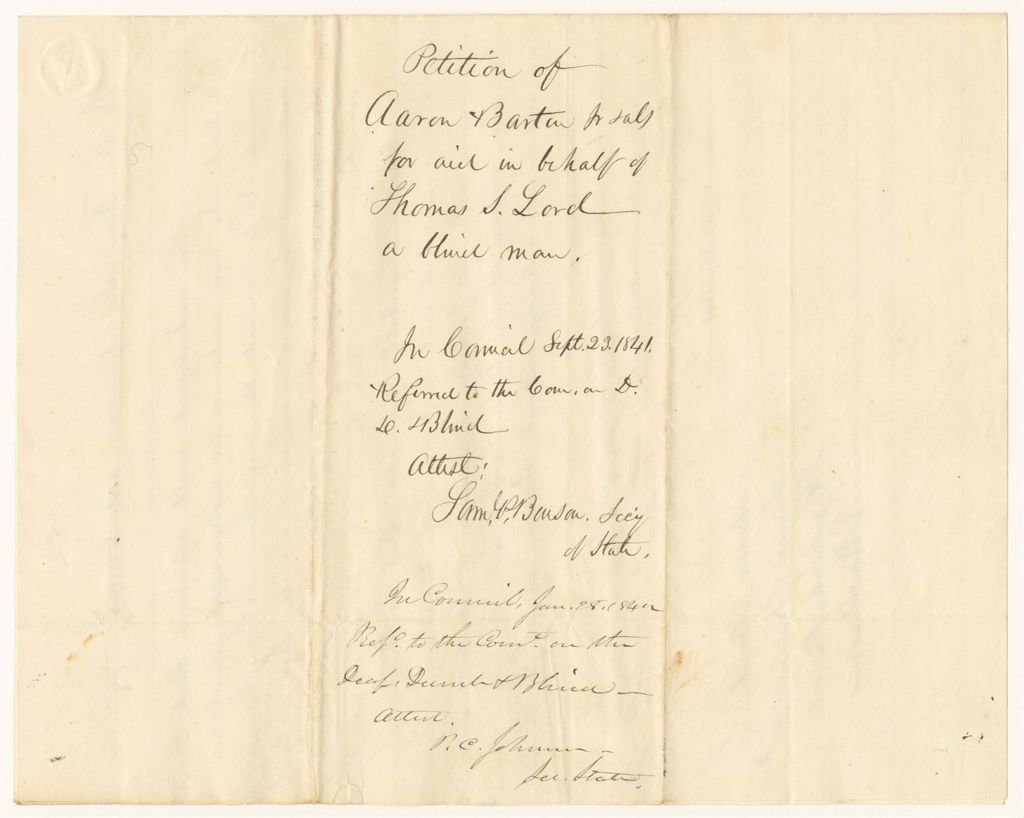 Petition of
Aaron Barton Jr & als
for aid in behalf of
Thomas S. Lord
a blind man.
In Council Sept. 23. 1841.
Referred to the Com. on D.
D. & Blind
Attest:
Saml. P. Benson. Sec'y
of State.
In Council, Jan. 28. 1842
Refd. to the Comt. on the
Deaf, Dumb & Blind —
Attest.
P. C. Johnson —
Sec. State.